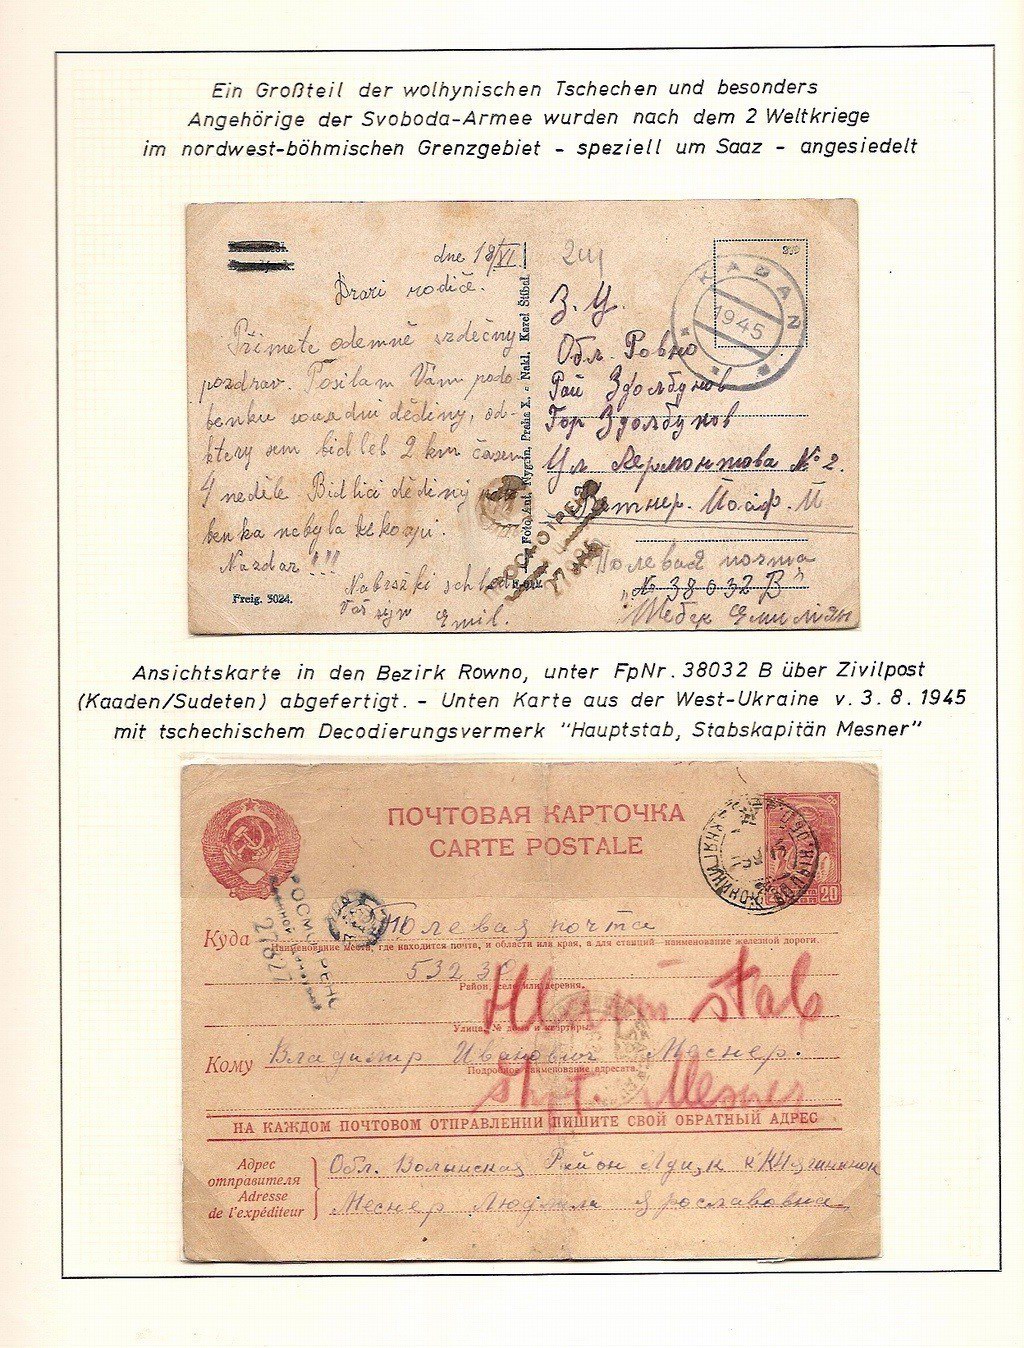 Ein Großteil der wolhynischen Tschechen und besonders
Angehörige der Svoboda-Armee wurden nach dem 2 Weltkriege
im nordwest-böhmischen Grenzgebiet - speziell um Saaz - angesiedelt
dne 18/VI.
Drazí rodiče.
Přimete odemně srdečny
pozdrav. Posilam Vám podo-
benku sousdni dědiny, od-
ktery sem bidlel 2 km časem
4 neděle. Bidlici dědiny podo
benka nebyla ke koupi.
Nazdar!!!
Váš syn Emil.
Freig. 3024.
Foto Ant. Nygrin, Praha X. - Nakl. Karel Štibal
KADAŇ
1945
З. У.
Обл. Ровно
Рай Здолбунов
Гор Здолбунов
Ул Лермонтова № 2.
ПРОСМОТРЕНО
Полевая почта
"№ 38032 В"
Ansichtskarte in den Bezirk Rowno, unter FpNr. 38032 B über Zivilpost
(Kaaden/Sudeten) abgefertigt. - Unten Karte aus der West-Ukraine v. 3. 8. 1945
mit tschechischem Decodierungsvermerk "Hauptstab, Stabskapitän Mesner"
ПОЧТОВАЯ КАРТОЧКА
CARTE POSTALE
20
ПРОСМОТРЕНО
Куда Полевая почта
Наименование места, где находится почта, и области или края, а для станций—наименование железной дороги.
53230
Район, село или деревня.
Hlavní stab
Улица, № дома и квартиры.
Кому Владимир Иванович Меснер.
Подробное наименование адресата.
škpt. Mesner
НА КАЖДОМ ПОЧТОВОМ ОТПРАВЛЕНИИ ПИШИТЕ СВОЙ ОБРАТНЫЙ АДРЕС
Адрес отправителя
Adresse de l'expéditeur
Обл. Волынская Район Луцк
Меснер Людмила Ярославовна